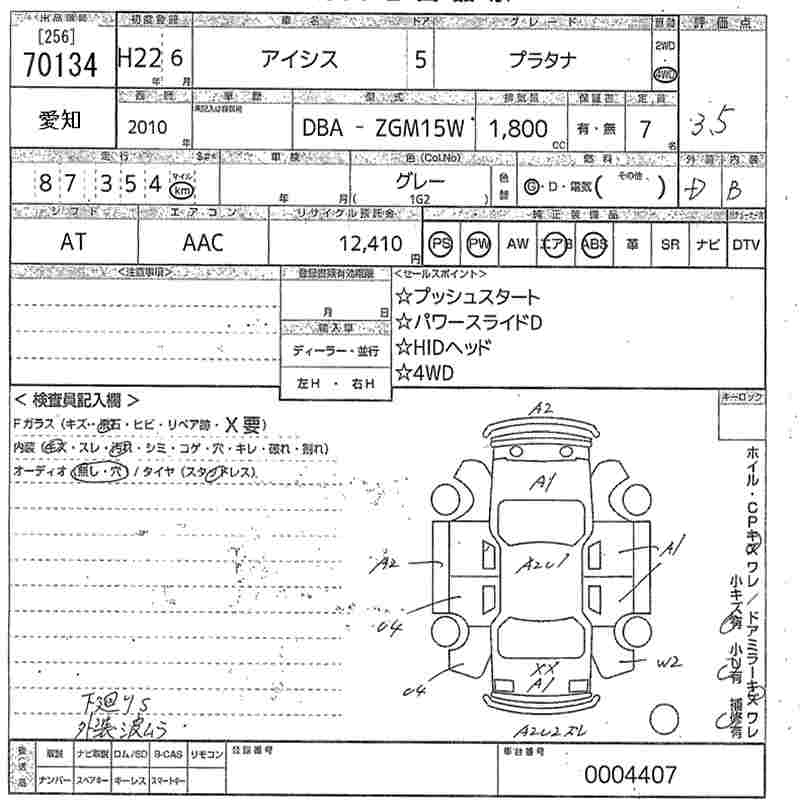 出品番号 初度登録 車名 ドア グレード 評価点
[256]
70134 H22 6 アイシス 5 プラタナ 2WD・4WD 3.5
年 月
西暦 車歴 型式 排気量 保証書 定員
愛知 2010 年 DBA - ZGM15W 1,800 cc 有・無 7 名
走行 車検 色(Col.No) 燃料 外装 内装
87,354 マイル km 年 月 グレー ( 1G2 ) 色替 G・D・電気( その他 ) D B
シフト エアコン リサイクル預託金 純正装備品
AT AAC 12,410 円 PS PW AW エアB ABS 革 SR ナビ DTV
<注意事項> 登録書類有効期限 <セールスポイント>
月 日 ☆プッシュスタート
輸入車 ☆パワースライドD
ディーラー・並行 ☆HIDヘッド
左H ・ 右H ☆4WD
< 検査員記入欄 > キーロック
Fガラス (キズ・飛石・ヒビ・リペア跡・X要)
内装 (キズ・スレ・汚れ・シミ・コゲ・穴・キレ・破れ・割れ)
オーディオ (無し・穴) / タイヤ (スタッドレス)
A2
A1
A2 A2U1 A1
U4
U4 XX W2
A1
A2U2スレ
ホイル・CPキズ ワレ / ドアミラーキズ ワレ
小キズ有 小U有 補修有
下廻りS
外装波ムラ
後送品 取説 ナビ取説 ロム/SD B-CAS リモコン 登録番号 車台番号
ナンバー スペアキー キーレス スマートキー 0004407